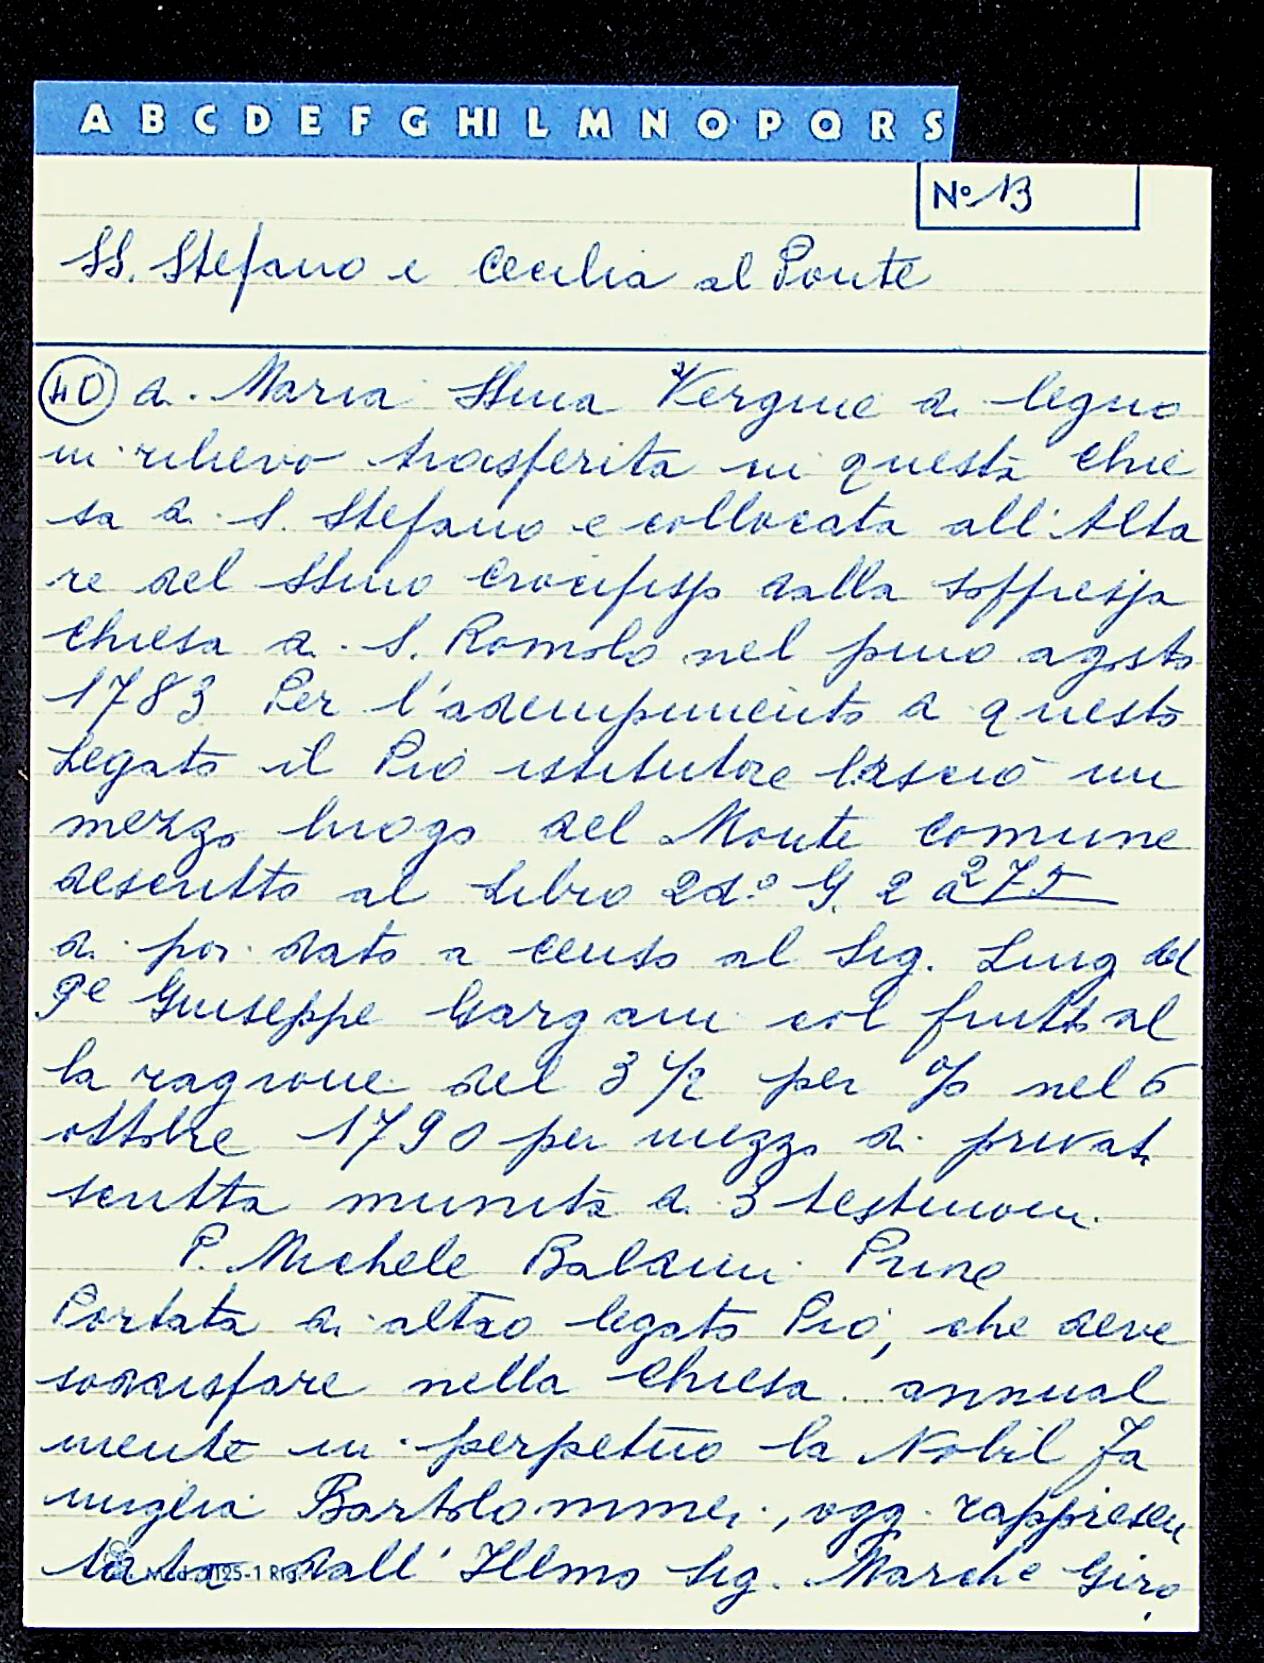 A B C D E F G HI L M N O P Q R S
No 13
SS. Stefano e Cecilia al Ponte
40 di Maria SSma Vergine di legno
in rilievo trasferita in questa Chie
sa di S. Stefano e collocata all'Alta
re del SSmo Crocifisso dalla soffressa
Chiesa di S. Romolo nel pmo agosto
1783 Per l'adempimento di questo
Legato il Pio istitutore lasciò un
mezzo luogo del Monte Comune
descritto al Libro 2do G. 2 a 275
di poi dato a censo al Sig. Luig del
qe Giuseppe Gargani col frutto al
la ragione del 3 1/2 per % nel 6
ottobre 1790 per mezzo di privat
scritta munita di 3 testimoni.
P. Michele Baldini Priore
Portata di altro legato Pio, che deve
soddisfare nella Chiesa annual
mente in perpetuo la Nobil Fa
miglia Bartolommei, oggi rappresen
tata dall' Illmo Sig. Marche Giro
Mod. 1125-1 Rig.